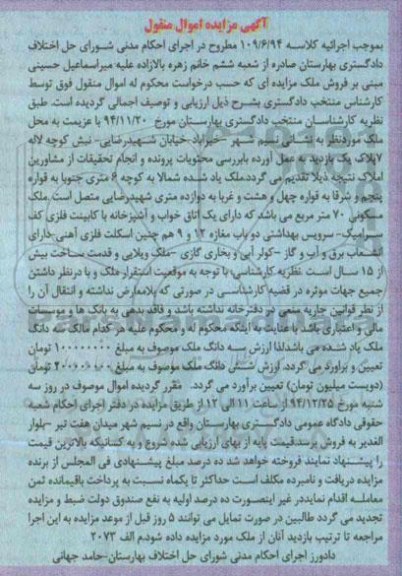 آگهی مزایده اموال منقول
بموجب اجرائیه کلاسه ۱۰۹/۶/۹۴ مطروح در اجرای احکام مدنی شورای حل اختلاف
دادگستری بهارستان صادره از شعبه ششم خانم زهره بالازاده علیه میراسماعیل حسینی
مبنی بر فروش ملک مزایده ای که حسب درخواست محکوم له اموال منقول فوق توسط
کارشناس منتخب دادگستری بشرح ذیل ارزیابی و توصیف اجمالی گردیده است. طبق
نظریه کارشناسان منتخب دادگستری بهارستان مورخ ۹۴/۱۱/۲۰ با عزیمت به محل
ملک موردنظر به نشانی نسیم شهر -خیرآباد-خیابان شهیدرضایی- نبش کوچه لاله
۷پلاک یک بازدید به عمل آورده بابررسی محتویات پرونده و انجام تحقیقات از مشاورین
املاک نتیجه ذیلا تقدیم می گردد.ملک یاد شده شمالا به کوچه ۶ متری جنوبا به قواره
پنجم و شرقا به قواره چهل و هشت و غربا به دوازده متری شهیدرضایی متصل است.ملک
مسکونی ۷۰ متر مربع می باشد که دارای یک اتاق خواب و آشپزخانه با کابینت فلزی کف
سرامیک- سرویس بهداشتی دو باب مغازه ۱۲ و ۹ هم چنین اسکلت فلزی آهنی-دارای
انشعاب برق و آب و گاز -کولر آبی و بخاری گازی -ملک ویلایی و قدمت ساخت بیش
از ۱۵ سال است. نظریه کارشناسی: با توجه به موقعیت استقرار ملک و با درنظر داشتن
جمیع جهات موثره در قضیه کارشناسی در صورتی که بلامعارض نداشته و انتقال آن را
از نظر قوانین جاریه منعی در دفترخانه نداشته باشد و فاقد بدهی به بانک ها و موسسات
مالی و اعتباری باشد با عنایت به اینکه محکوم له و محکوم علیه هر کدام مالک سه دانگ
ملک یاد شده می باشدلذا ارزش سه دانگ ملک موصوف به مبلغ ۱۰۰۰۰۰۰۰۰ تومان
تعیین و برآورد می گردد. ارزش شش دانگ ملک موصوف به مبلغ ۲۰۰۰۰۰۰۰۰ تومان
(دویست میلیون تومان) تعیین برآورد می گردد. مقرر گردیده اموال موصوف در روز سه
شنبه مورخ ۹۴/۱۲/۲۵ از ساعت ۱۱ الی ۱۲ از طریق مزایده در دفتر اجرای احکام شعبه
حقوقی دادگاه عمومی دادگستری بهارستان واقع در نسیم شهر میدان هفت تیر -بلوار
الغدیر به فروش برسد.قیمت پایه از بهای ارزیابی شده شروع و به کسانیکه بالاترین قیمت
را پیشنهاد نمایند فروخته خواهد شد ده درصد مبلغ پیشنهادی فی المجلس از برنده
مزایده دریافت و نامبرده مکلف است حداکثر تا یکماه نسبت به پرداخت باقیمانده ثمن
معامله اقدام نماید.در غیر اینصورت ده درصد اولیه به نفع صندوق دولت ضبط و مزایده
تجدید می گردد طالبین در صورت تمایل می توانند ۵ روز قبل از موعد مزایده به این اجرا
مراجعه تا ترتیب بازدید آنان از ملک مورد مزایده داده شود.م الف ۲۰۷۳
دادورز اجرای احکام مدنی شورای حل اختلاف بهارستان-حامد جهانی